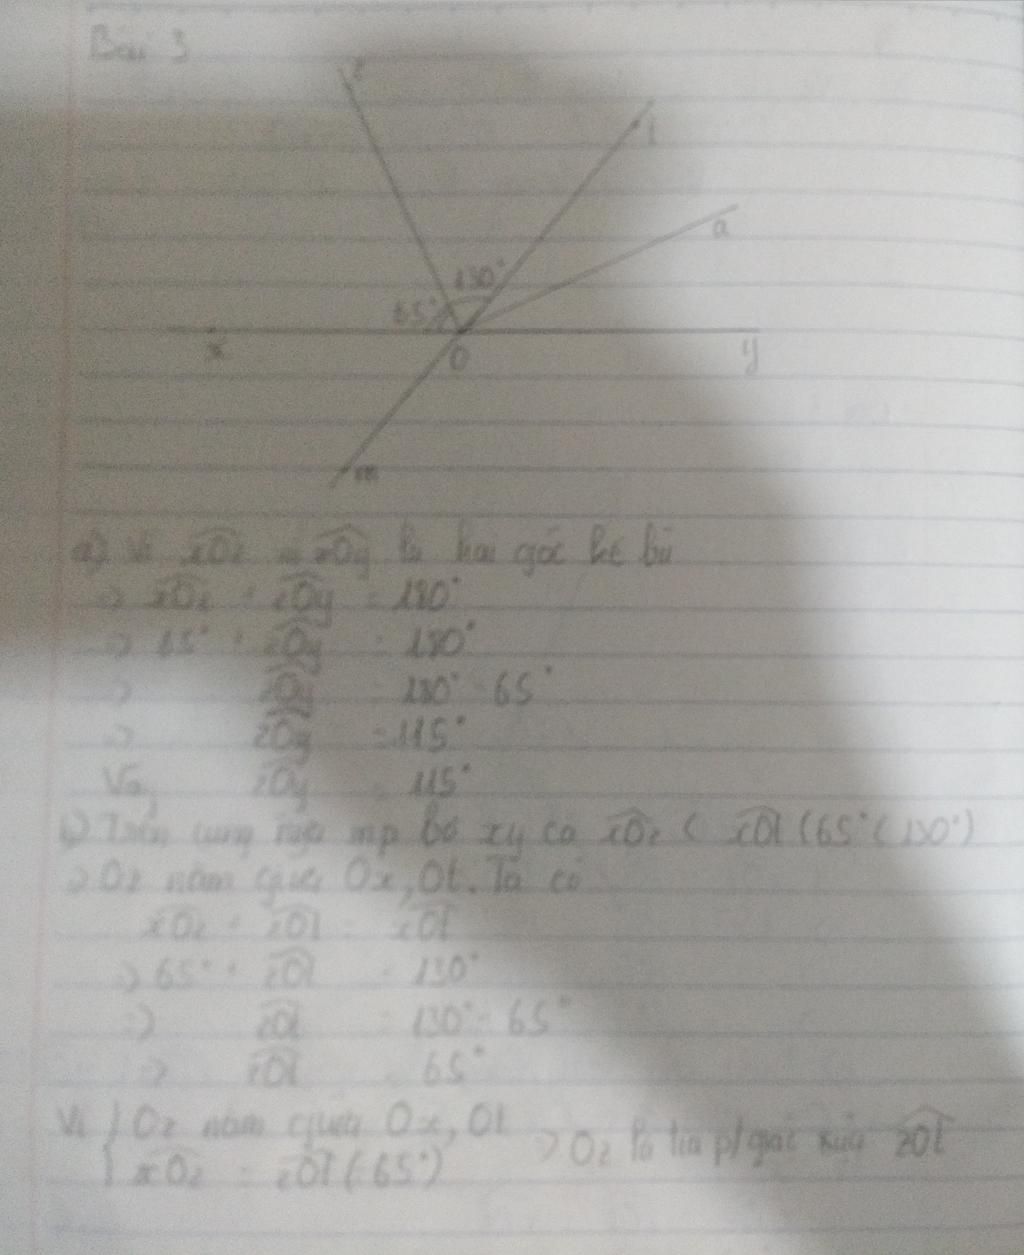 Bài 3
z
t
a
130°
65°
x
O
y
m
a) Vì xOz và zOy là hai góc kề bù
=> xOz + zOy = 180°
=> 65° + zOy = 180°
=> zOy = 180° - 65°
=> zOy = 115°
Vậy zOy = 115°
b) Trên cùng mp bờ xy có xOz < xOt (65° < 130°)
=> Oz nằm giữa Ox, Ot. Ta có
xOz + zOt = xOt
=> 65° + zOt = 130°
=> zOt = 130° - 65°
=> zOt = 65°
Vì { Oz nằm giữa Ox, Ot => Oz là tia p/giác của zOt
xOz = zOt (=65°)